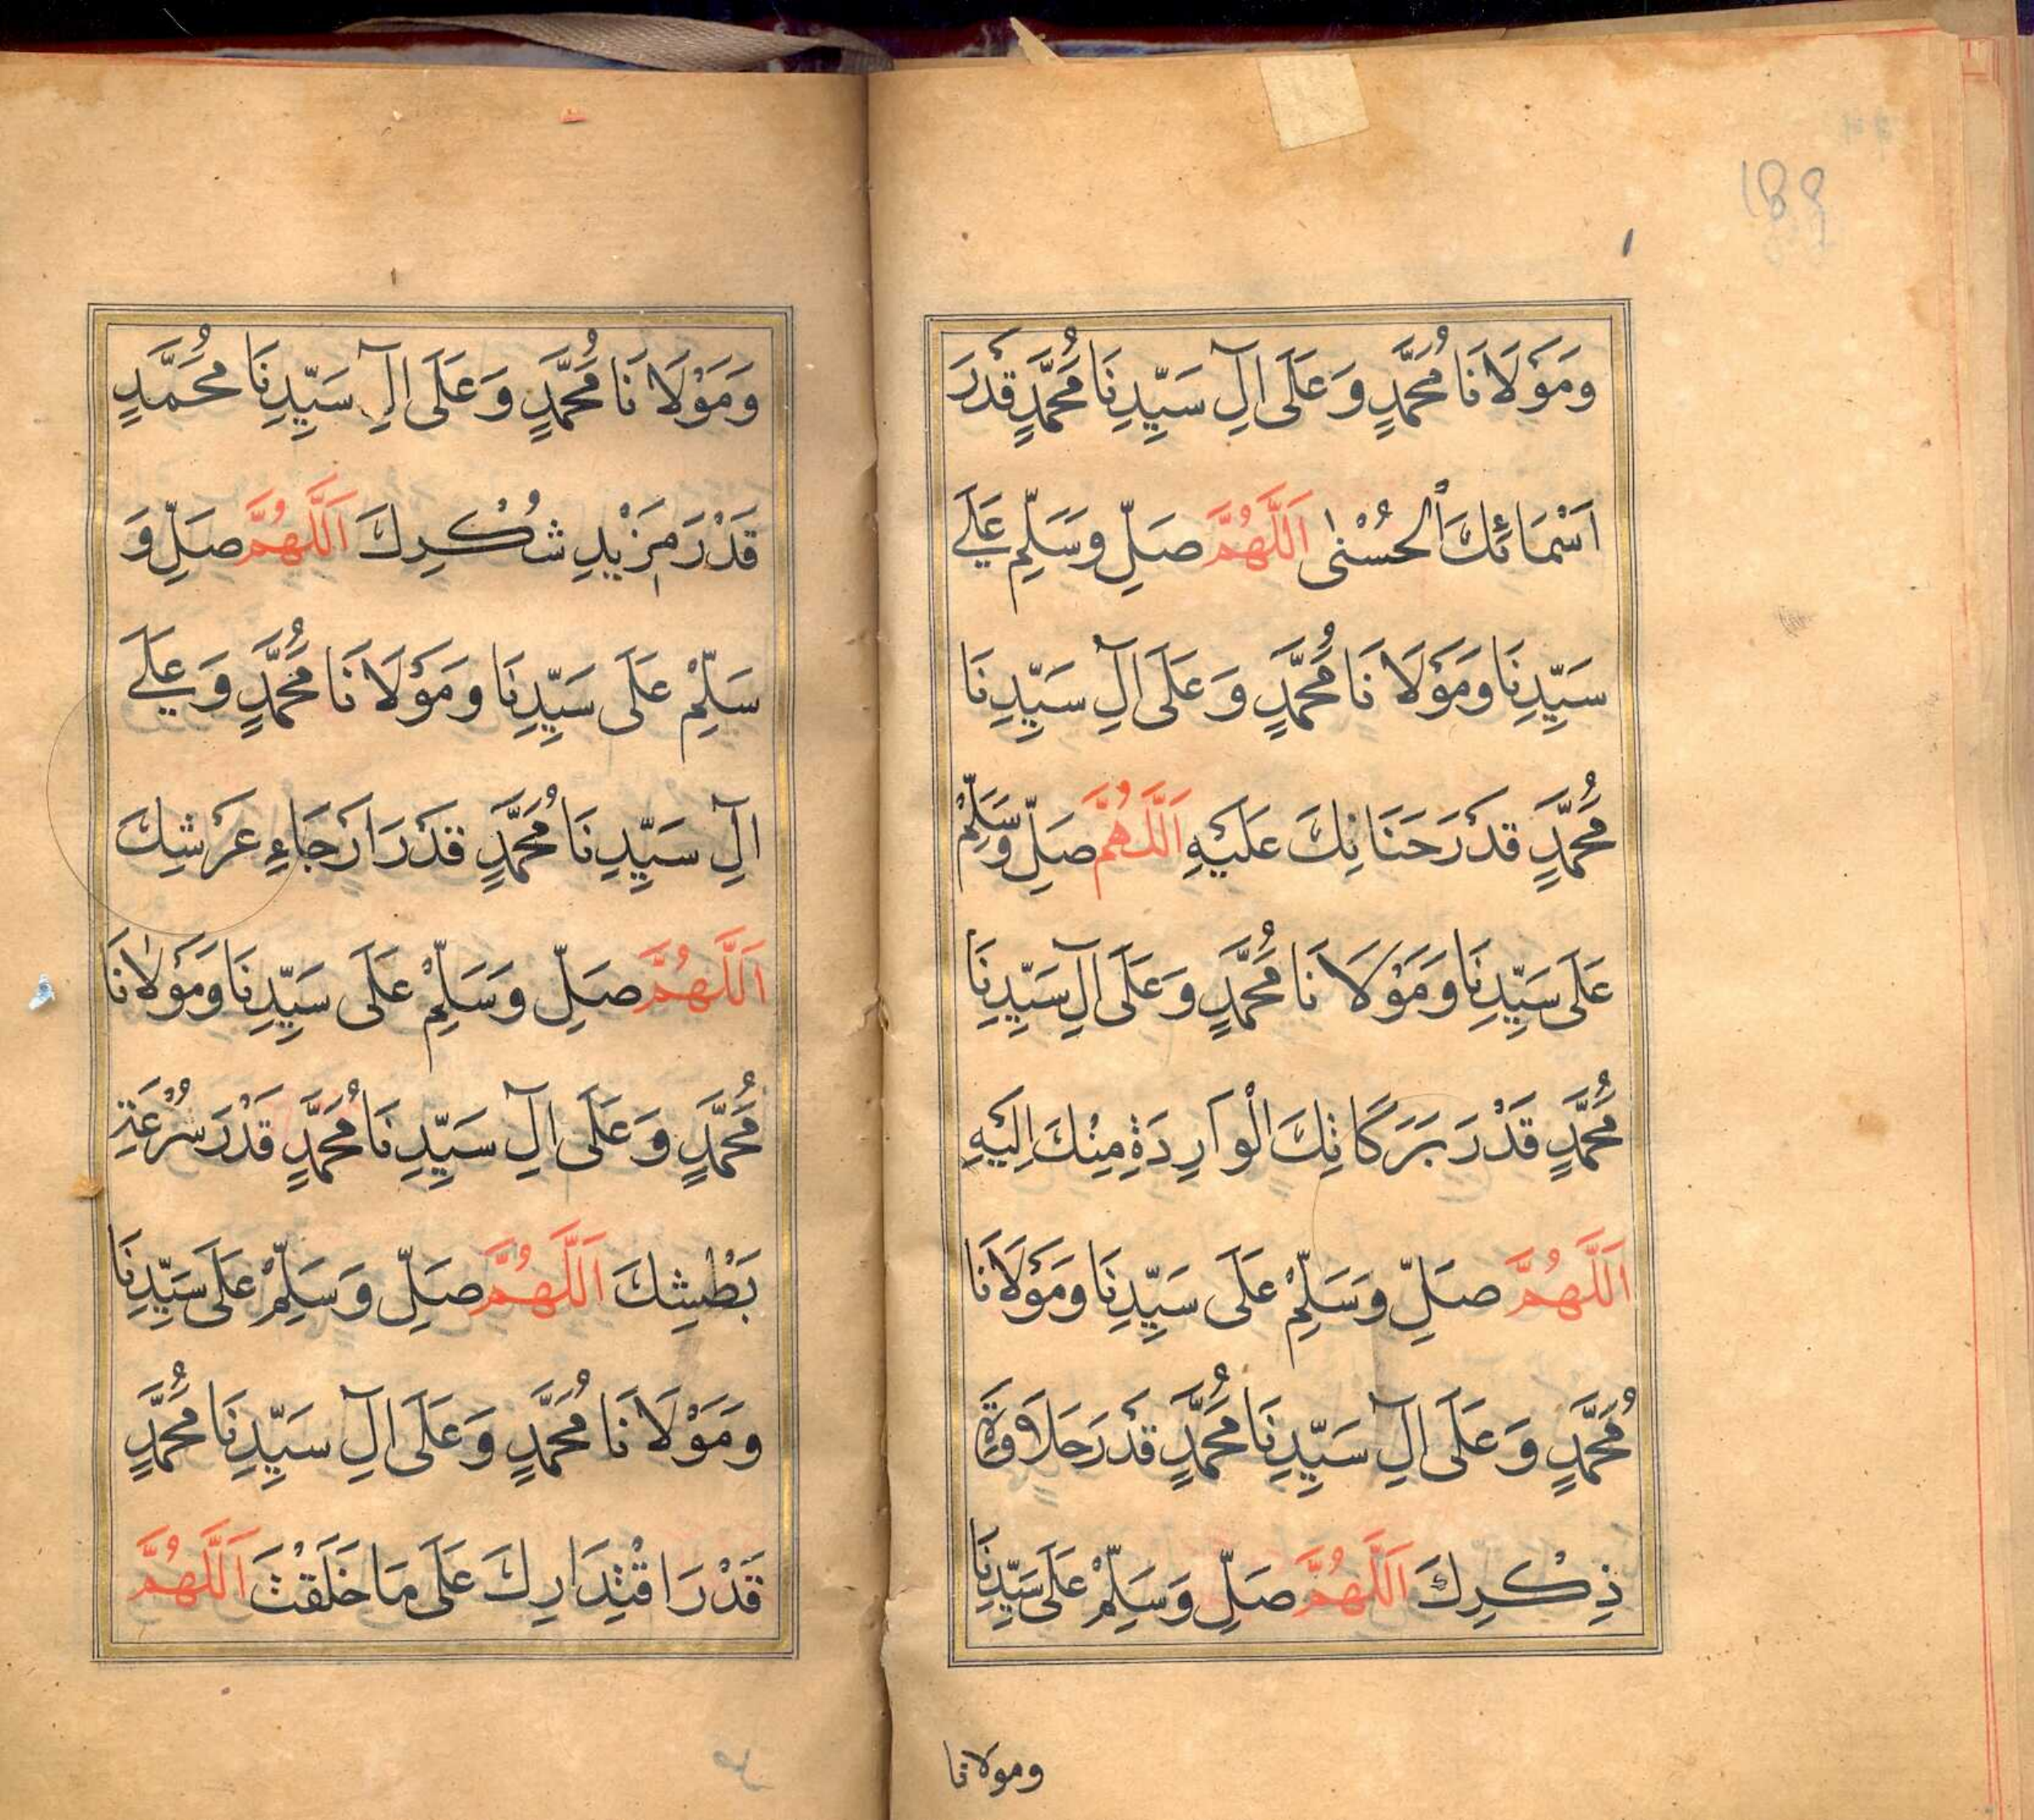 189
وَمَوْلَانَا مُحَمَّدٍ وَعَلَى اٰلِ سَيِّدِنَا مُحَمَّدٍ قَدْرَ
اَسْمَائِكَ الْحُسْنٰى اَللّٰهُمَّ صَلِّ وَسَلِّمْ عَلٰے
سَيِّدِنَا وَمَوْلَانَا مُحَمَّدٍ وَعَلَى اٰلِ سَيِّدِنَا
مُحَمَّدٍ قَدْرَ حَنَانِكَ عَلَيْهِ اَللّٰهُمَّ صَلِّ وَسَلِّمْ
عَلَى سَيِّدِنَا وَمَوْلَانَا مُحَمَّدٍ وَعَلَى اٰلِ سَيِّدِنَا
مُحَمَّدٍ قَدْرَ بَرَكَاتِكَ الْوَارِدَةِ مِنْكَ اِلَيْهِ
اَللّٰهُمَّ صَلِّ وَسَلِّمْ عَلَى سَيِّدِنَا وَمَوْلَانَا
مُحَمَّدٍ وَعَلَى اٰلِ سَيِّدِنَا مُحَمَّدٍ قَدْرَ حَلَاوَةِ
ذِكْرِكَ اَللّٰهُمَّ صَلِّ وَسَلِّمْ عَلَى سَيِّدِنَا
ومولانا
وَمَوْلَانَا مُحَمَّدٍ وَعَلَى اٰلِ سَيِّدِنَا مُحَمَّدٍ
قَدْرَ مَزِيْدِ شُكْرِكَ اَللّٰهُمَّ صَلِّ وَ
سَلِّمْ عَلَى سَيِّدِنَا وَمَوْلَانَا مُحَمَّدٍ وَعَلٰے
اٰلِ سَيِّدِنَا مُحَمَّدٍ قَدْرَ اَرْجَاءِ عَرْشِكَ
اَللّٰهُمَّ صَلِّ وَسَلِّمْ عَلَى سَيِّدِنَا وَمَوْلَانَا
مُحَمَّدٍ وَعَلَى اٰلِ سَيِّدِنَا مُحَمَّدٍ قَدْرَ سُرْعَةِ
بَطْشِكَ اَللّٰهُمَّ صَلِّ وَسَلِّمْ عَلَى سَيِّدِنَا
وَمَوْلَانَا مُحَمَّدٍ وَعَلَى اٰلِ سَيِّدِنَا مُحَمَّدٍ
قَدْرَ اقْتِدَارِكَ عَلَى مَا خَلَقْتَ اَللّٰهُمَّ